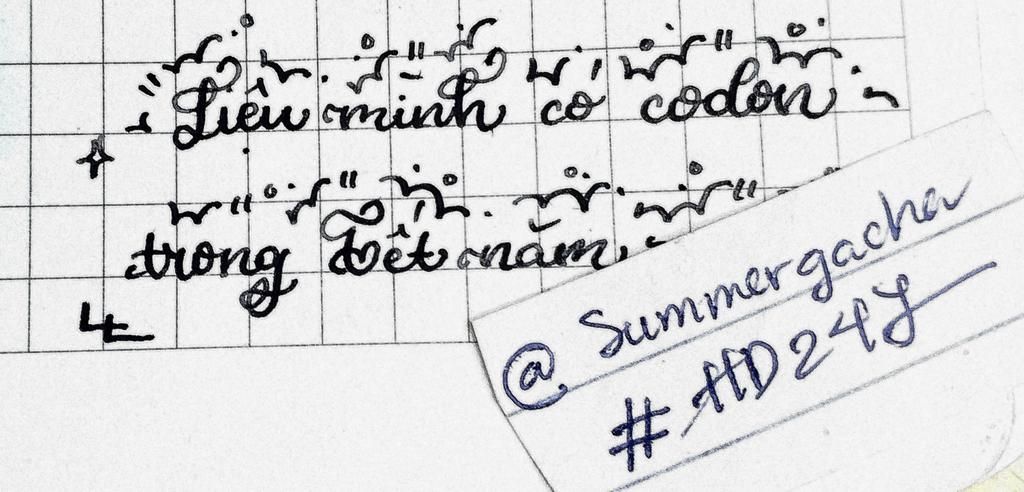 Liệu mình có cô đơn
trong tết năm
@Summergacha
#HD24Y